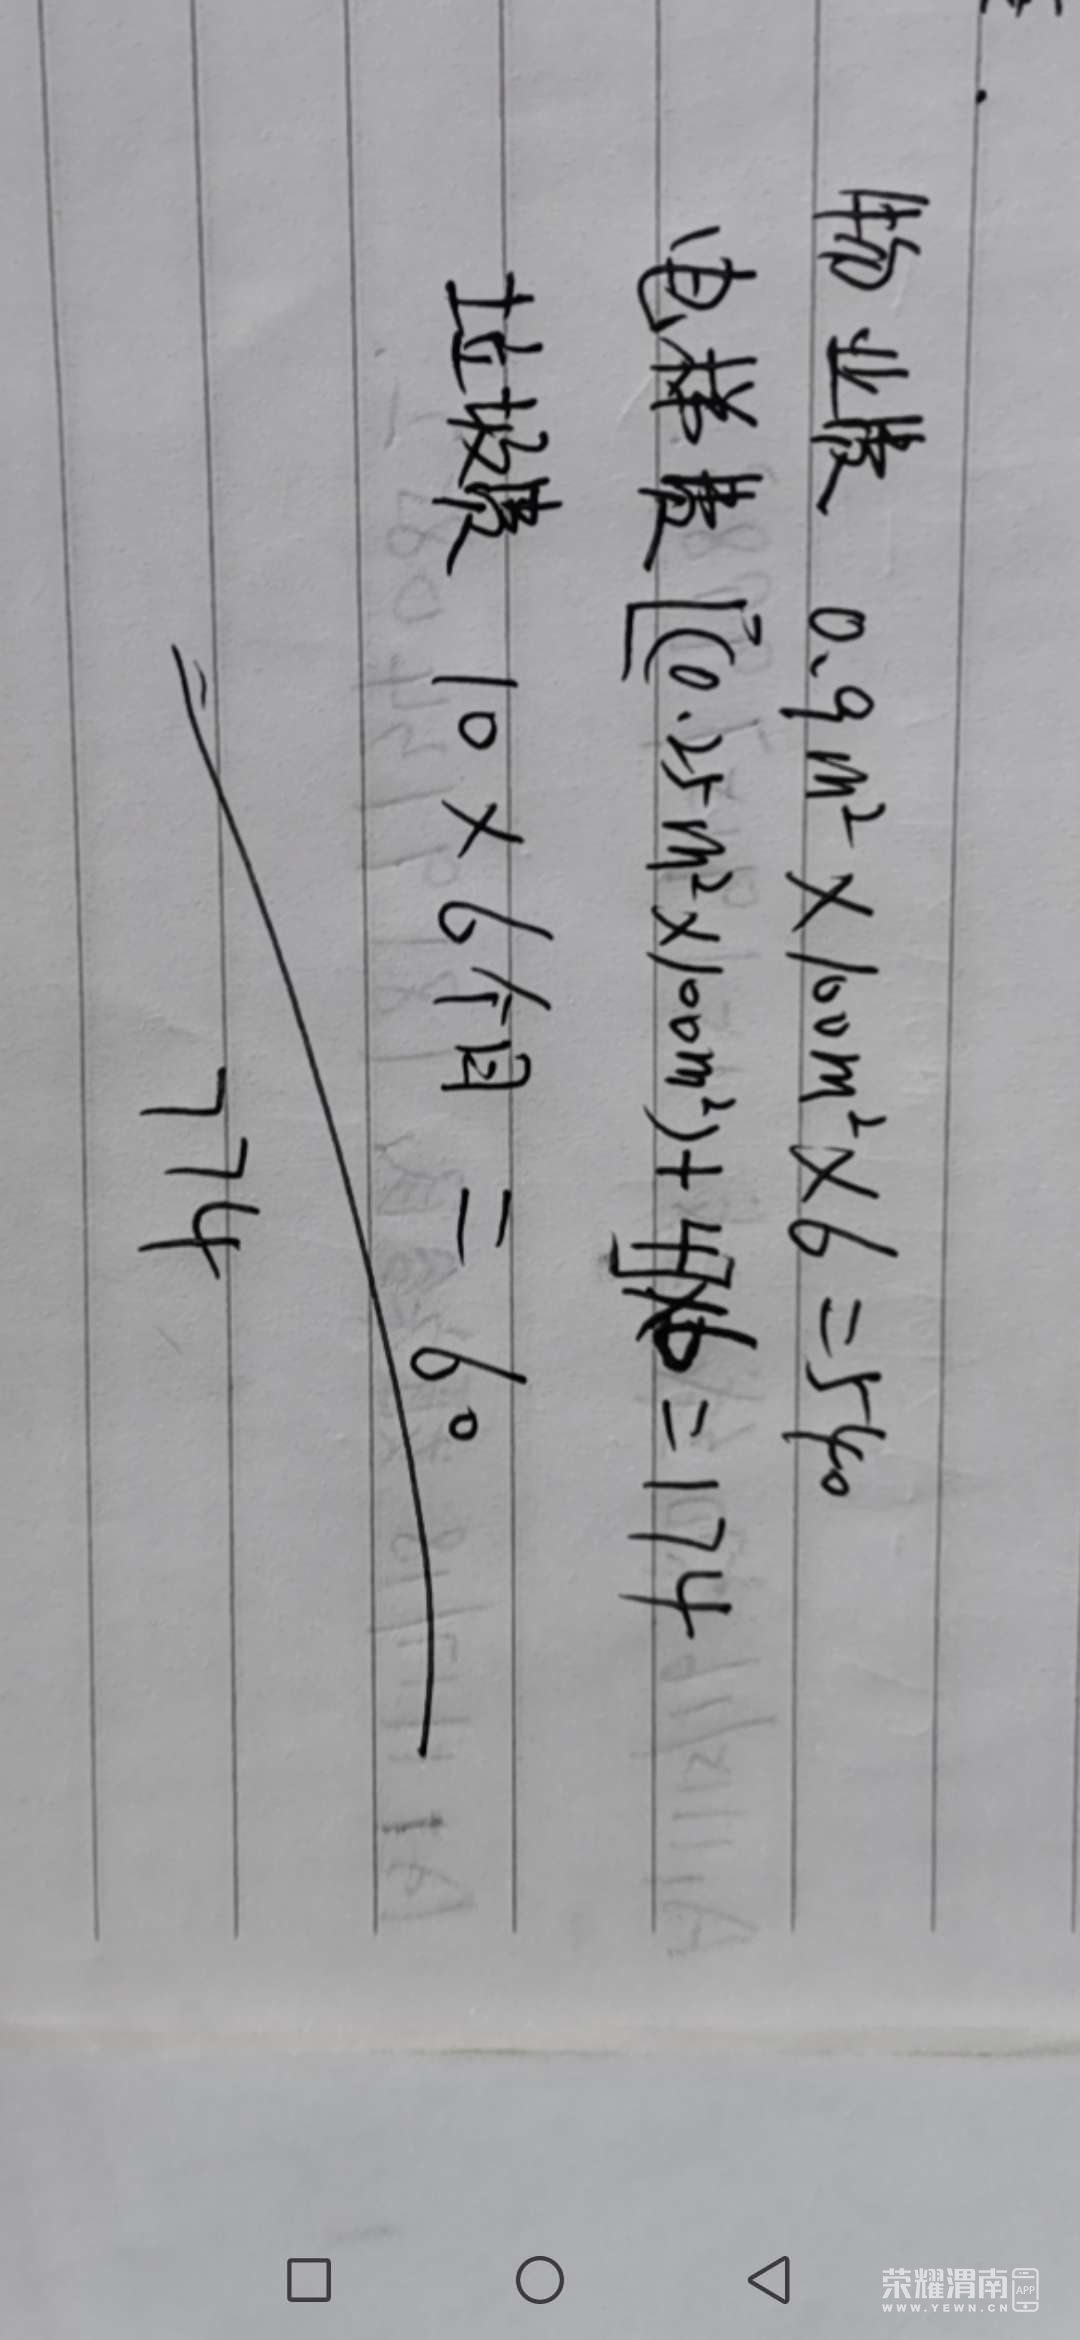 物业费 0.9m²×100m²×6=540
电梯费[(0.25m²×100m²)+4]×6=174
垃圾费 10×6个月=60
774
荣耀渭南 APP
WWW.YEWN.CN